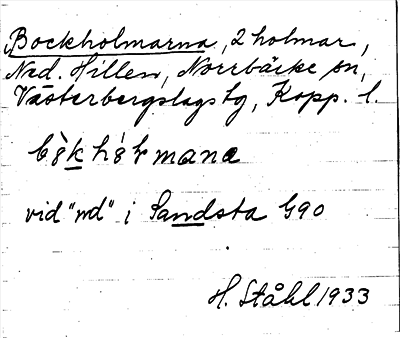 Bockholmarna, 2 holmar,
Ned. Hillen, Norrbärke sn,
Västerbergslags tg, Kopp. l.
vid "nd" i Sandsta G90
H. Ståhl 1933